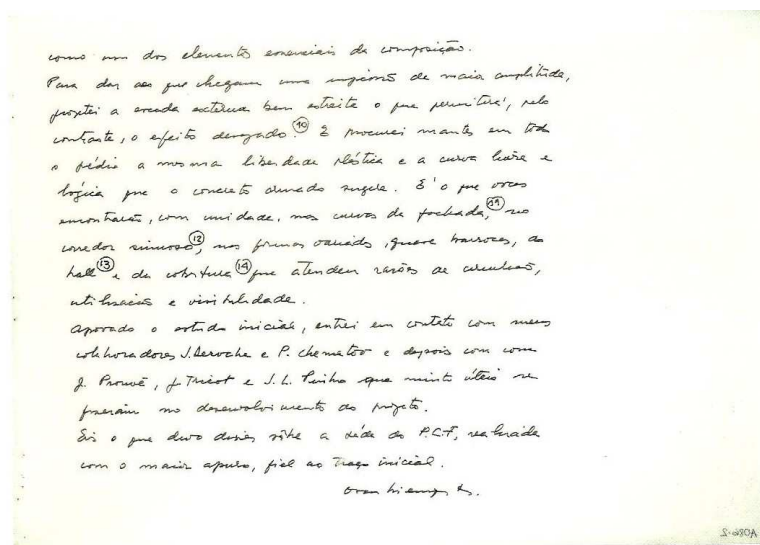 como um dos elementos essenciais da composição.
Para dar aos que chegam uma impressão de maior amplitude,
projetei a entrada externa bem estreita o que permitirá, pelo
contraste, o efeito desejado. (10) E procurei manter em todo
o prédio a mesma liberdade plástica e a curva livre e
lógica que o concreto armado sugere. E' o que voces
encontrarão, com unidade, nas curvas da fachada, (11) no
corredor sinuoso (12), nas formas variadas, quase barrocas, do
hall (13) e da cobertura (14) que atendem razões de circulação,
utilisação e visibilidade.
Aprovado o estudo inicial, entrei em contato com meus
colaboradores J. Deroche e P. Chemetov e depois com com
J. Prouvé, J. Tricot e J. L. Pinho que muito úteis se
fizeram no desenvolvimento do projeto.
Eis o que devo dizer sôbre a séde do P.C.F, realisada
com o maior apuro, fiel ao traço inicial.
A086-2